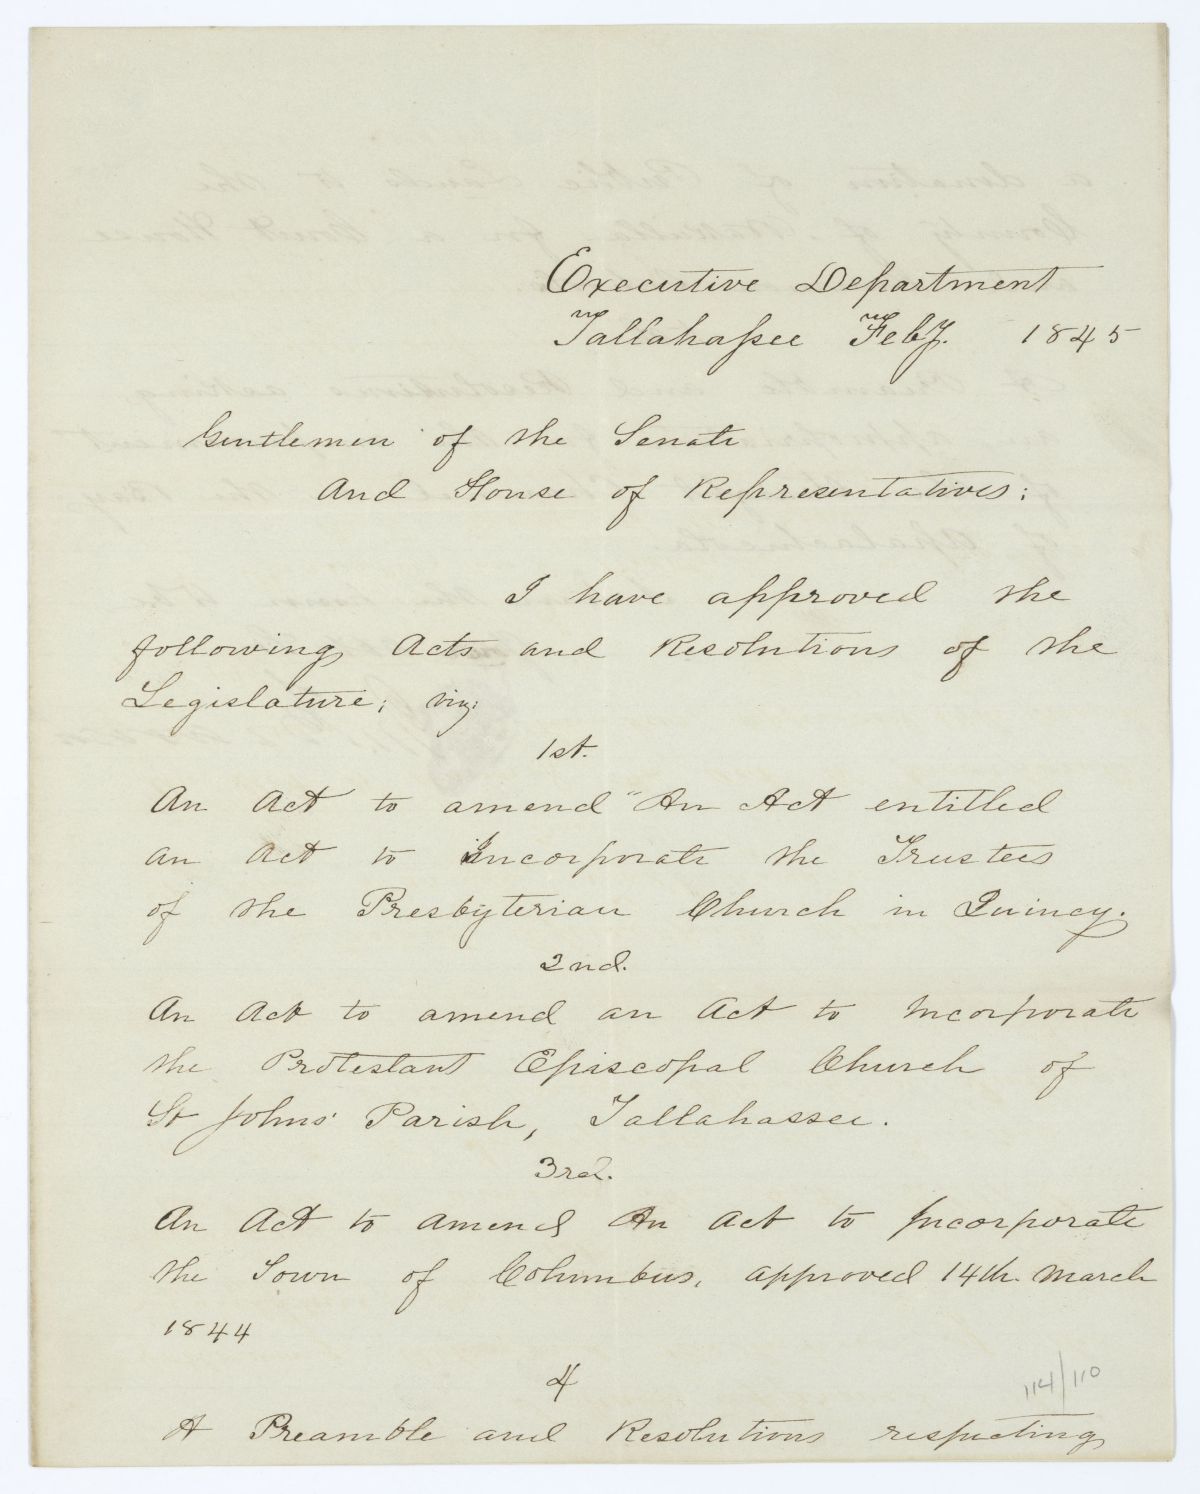 Executive Department
Tallahassee Feby. 1845
Gentlemen of the Senate
And House of Representatives:
I have approved the
following Acts and Resolutions of the
Legislature; viz:
1st.
An Act to amend "An Act entitled
an Act to Incorporate the Trustees
of the Presbyterian Church in Quincy.
2nd.
An Act to amend an Act to Incorporate
the Protestant Episcopal Church of
St Johns' Parish, Tallahassee.
3rd.
An Act to amend An Act to Incorporate
the Town of Columbus, approved 14th. March
1844
4
A Preamble and Resolutions respecting
114/110